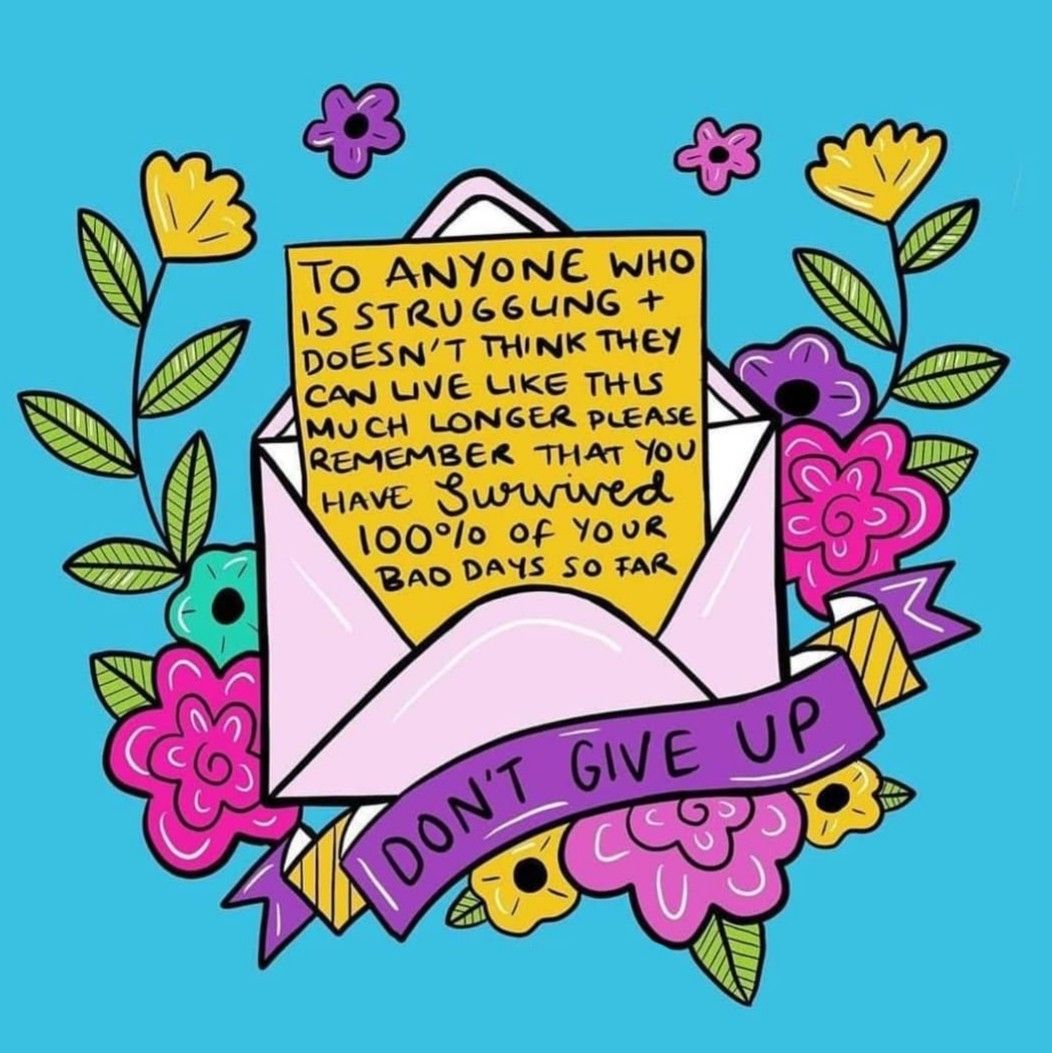 TO ANYONE WHO
IS STRUGGLING +
DOESN'T THINK THEY
CAN LIVE LIKE THIS
MUCH LONGER PLEASE
REMEMBER THAT YOU
HAVE Survived
100% OF YOUR
BAD DAYS SO FAR
DON'T GIVE UP